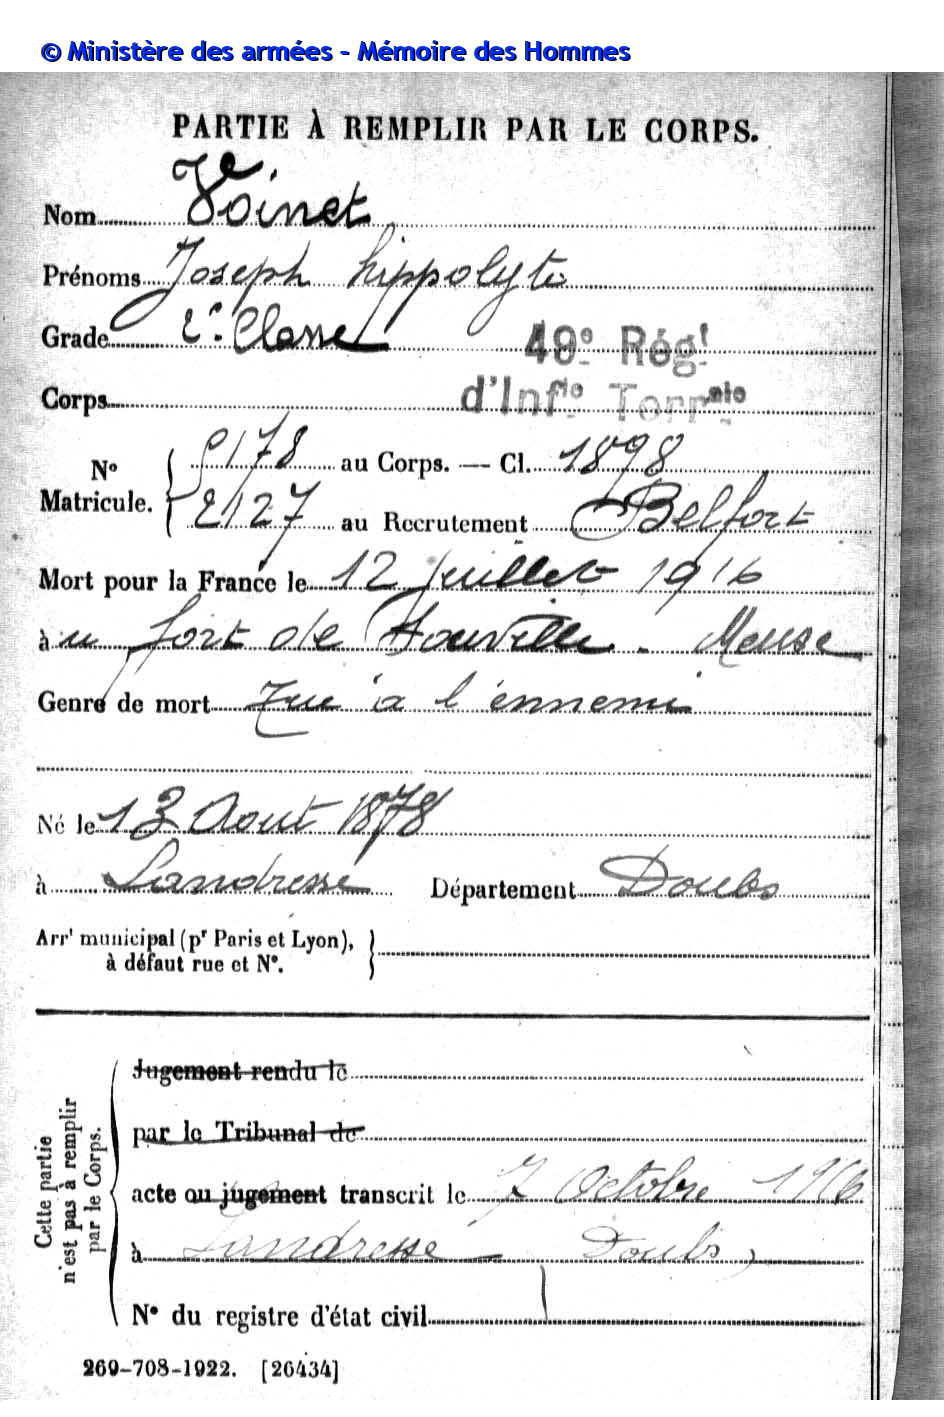 © Ministère des armées - Mémoire des Hommes
PARTIE À REMPLIR PAR LE CORPS.
Nom Voinet
Prénoms Joseph hippolyte
Grade 2e Classe
49e Régt
Corps d'Infie Torrale
No Matricule. 2178 au Corps. — Cl. 1898
2127 au Recrutement Belfort
Mort pour la France le 12 juillet 1916
à u fort de Souville. Meuse
Genre de mort Tué à l'ennemi
Né le 13 Aout 1878
à Landresse Département Doubs
Arrt municipal (pr Paris et Lyon),
à défaut rue et N°.
Cette partie
n'est pas à remplir
par le Corps.
Jugement rendu le
par le Tribunal de
acte ou jugement transcrit le 7 Octobre 1916
à Landresse Doubs
N° du registre d'état civil
269-708-1922. [26434]